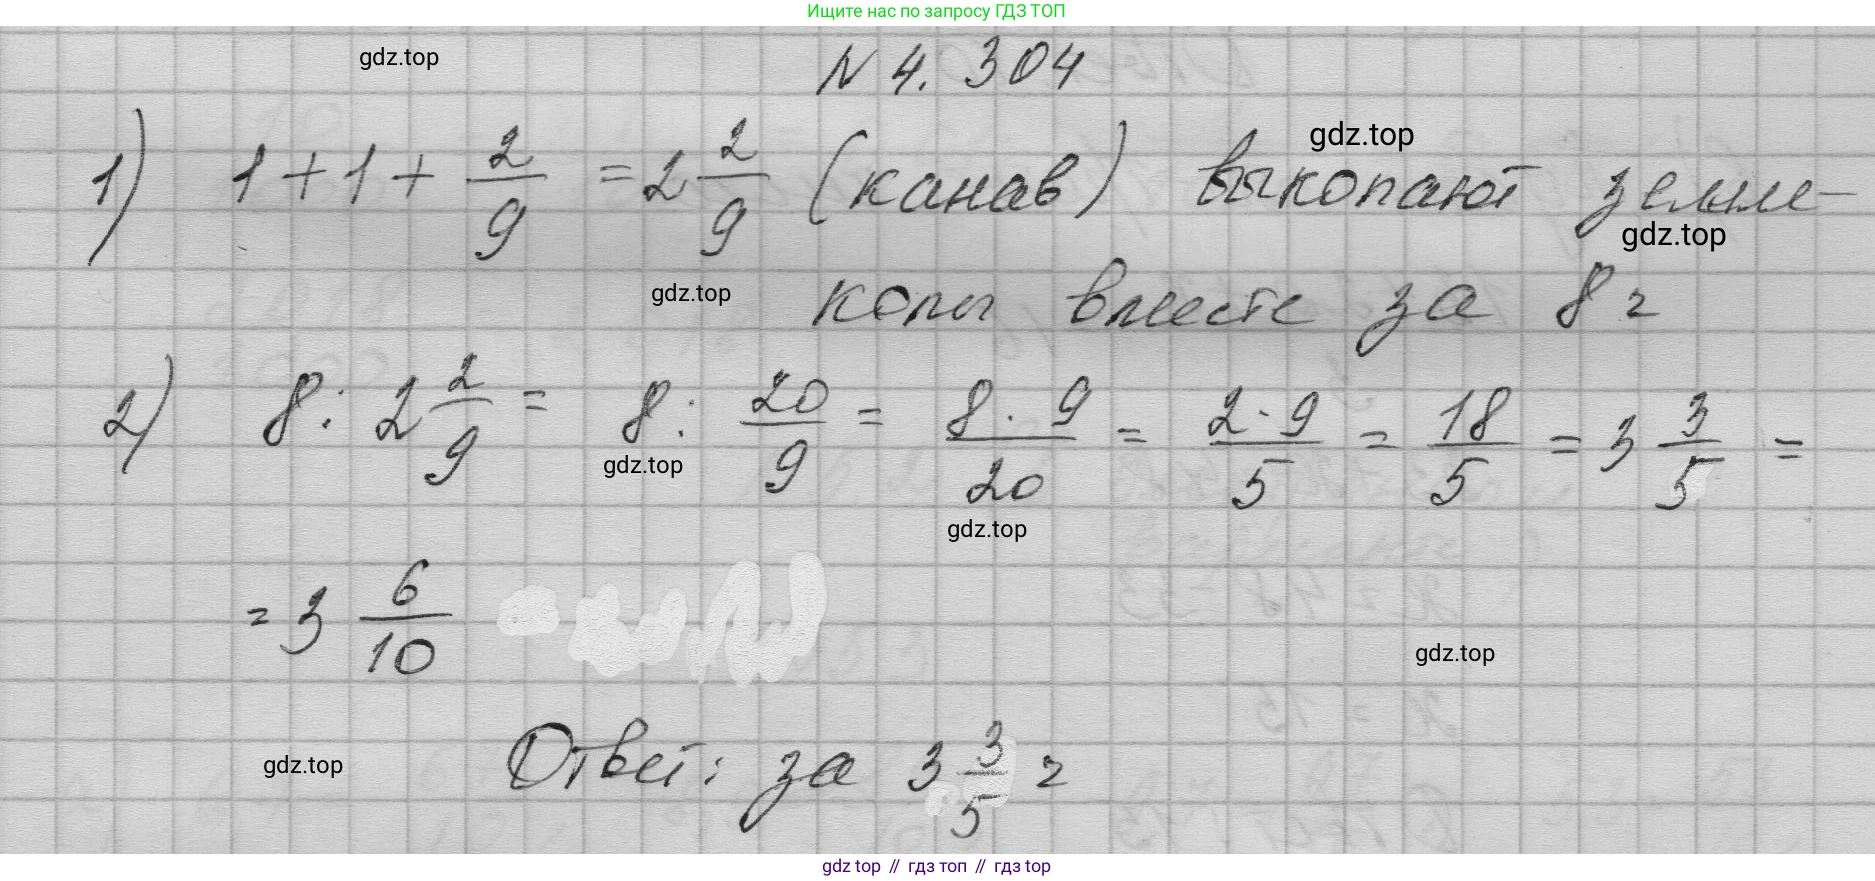 Ищите нас по запросу ГДЗ ТОП
gdz.top
N 4.304
1) 1 + 1 + 2/9 = 2 2/9 (канав) выкопают земле-
gdz.top
gdz.top
копы вместе за 8 ч
gdz.top
2) 8 : 2 2/9 = 8 : 20/9 = 8 · 9/20 = 2 · 9/5 = 18/5 = 3 3/5 =
gdz.top
gdz.top
= 3 6/10
gdz.top
Ответ: за 3 3/5 ч
gdz.top
gdz top // гдз топ // gdz top